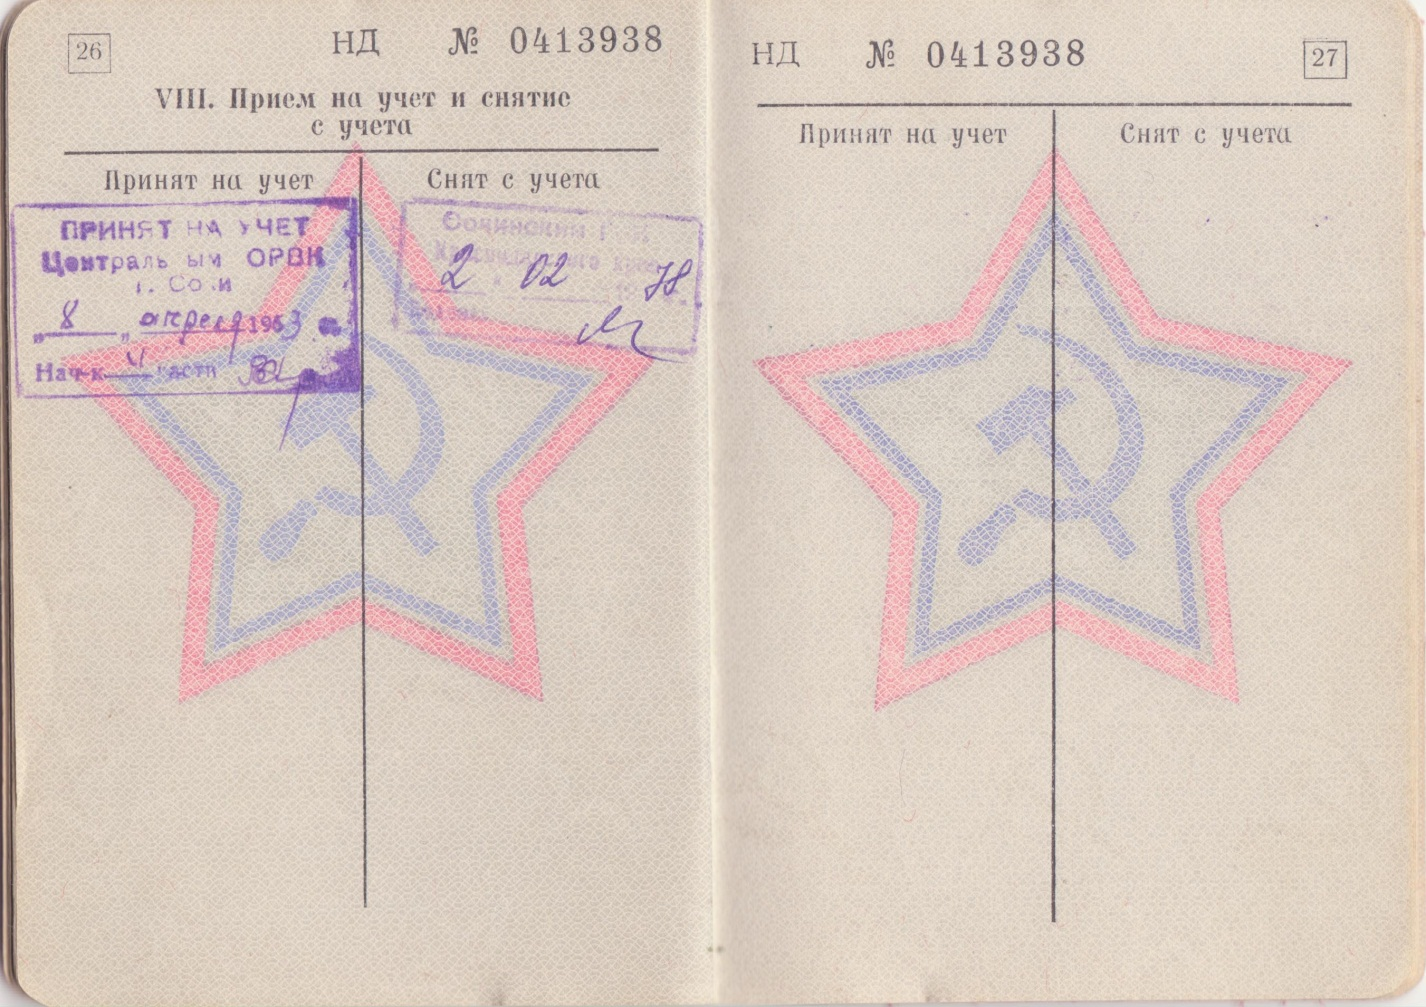 26
НД № 0413938
VIII. Прием на учет и снятие
с учета
Принят на учет
Снят с учета
ПРИНЯТ НА УЧЕТ
Центральным ОРВК
г. Сочи
„ 8 „ апреля 1963 г.
Нач-к 4 части
Сочинский
2 02 78
НД № 0413938
27
Принят на учет
Снят с учета